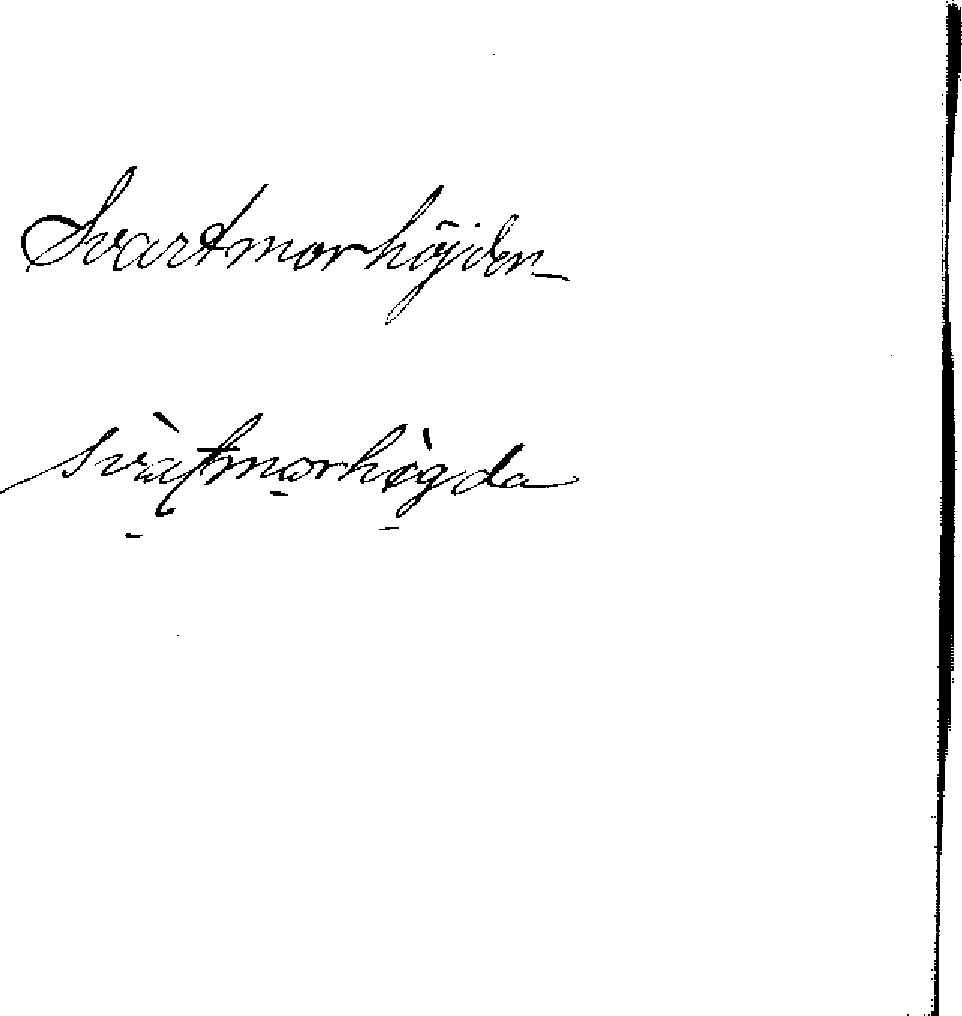 Svartmorhöjden
svàtmorhògda